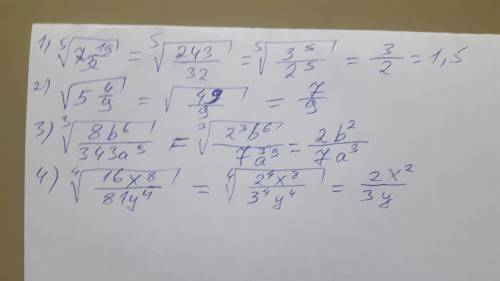 1) ⁵√(7 19/32) = ⁵√(243/32) = ⁵√(3⁵/2⁵) = 3/2 = 1,5
2) √(5 4/9) = √(49/9) = 7/9
3) ³√(8b⁶/343a⁹) = ³√(2³b⁶/7³a⁹) = 2b²/7a³
4) ⁴√(16x⁸/81y⁴) = ⁴√(2⁴x⁸/3⁴y⁴) = 2x²/3y